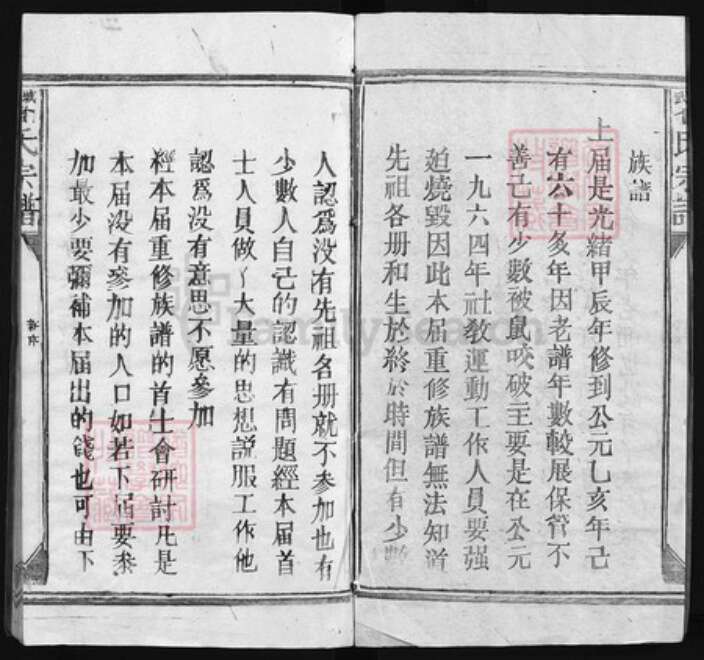 族譜
上届是光緒甲辰年修到公元乙亥年己
有六十多年因老譜年數較展保管不
善己有少數被鼠咬破主要是在公元
一九六四年社教運動工作人員要强
迫燒毀因此本届重修族譜無法知道
先祖各册和生於終於時間但有少數
人認爲没有先祖各册就不參加也有
少數人自己的認識有問題經本届首
士人員做了大量的思想説服工作他
認爲没有意思不愿參加
經本届重修族譜的首士會研討凡是
本届没有參加的人口如若下届要叅
加最少要彌補本届出的錢也可由下
氏宗譜
氏宗譜
FamilySearch